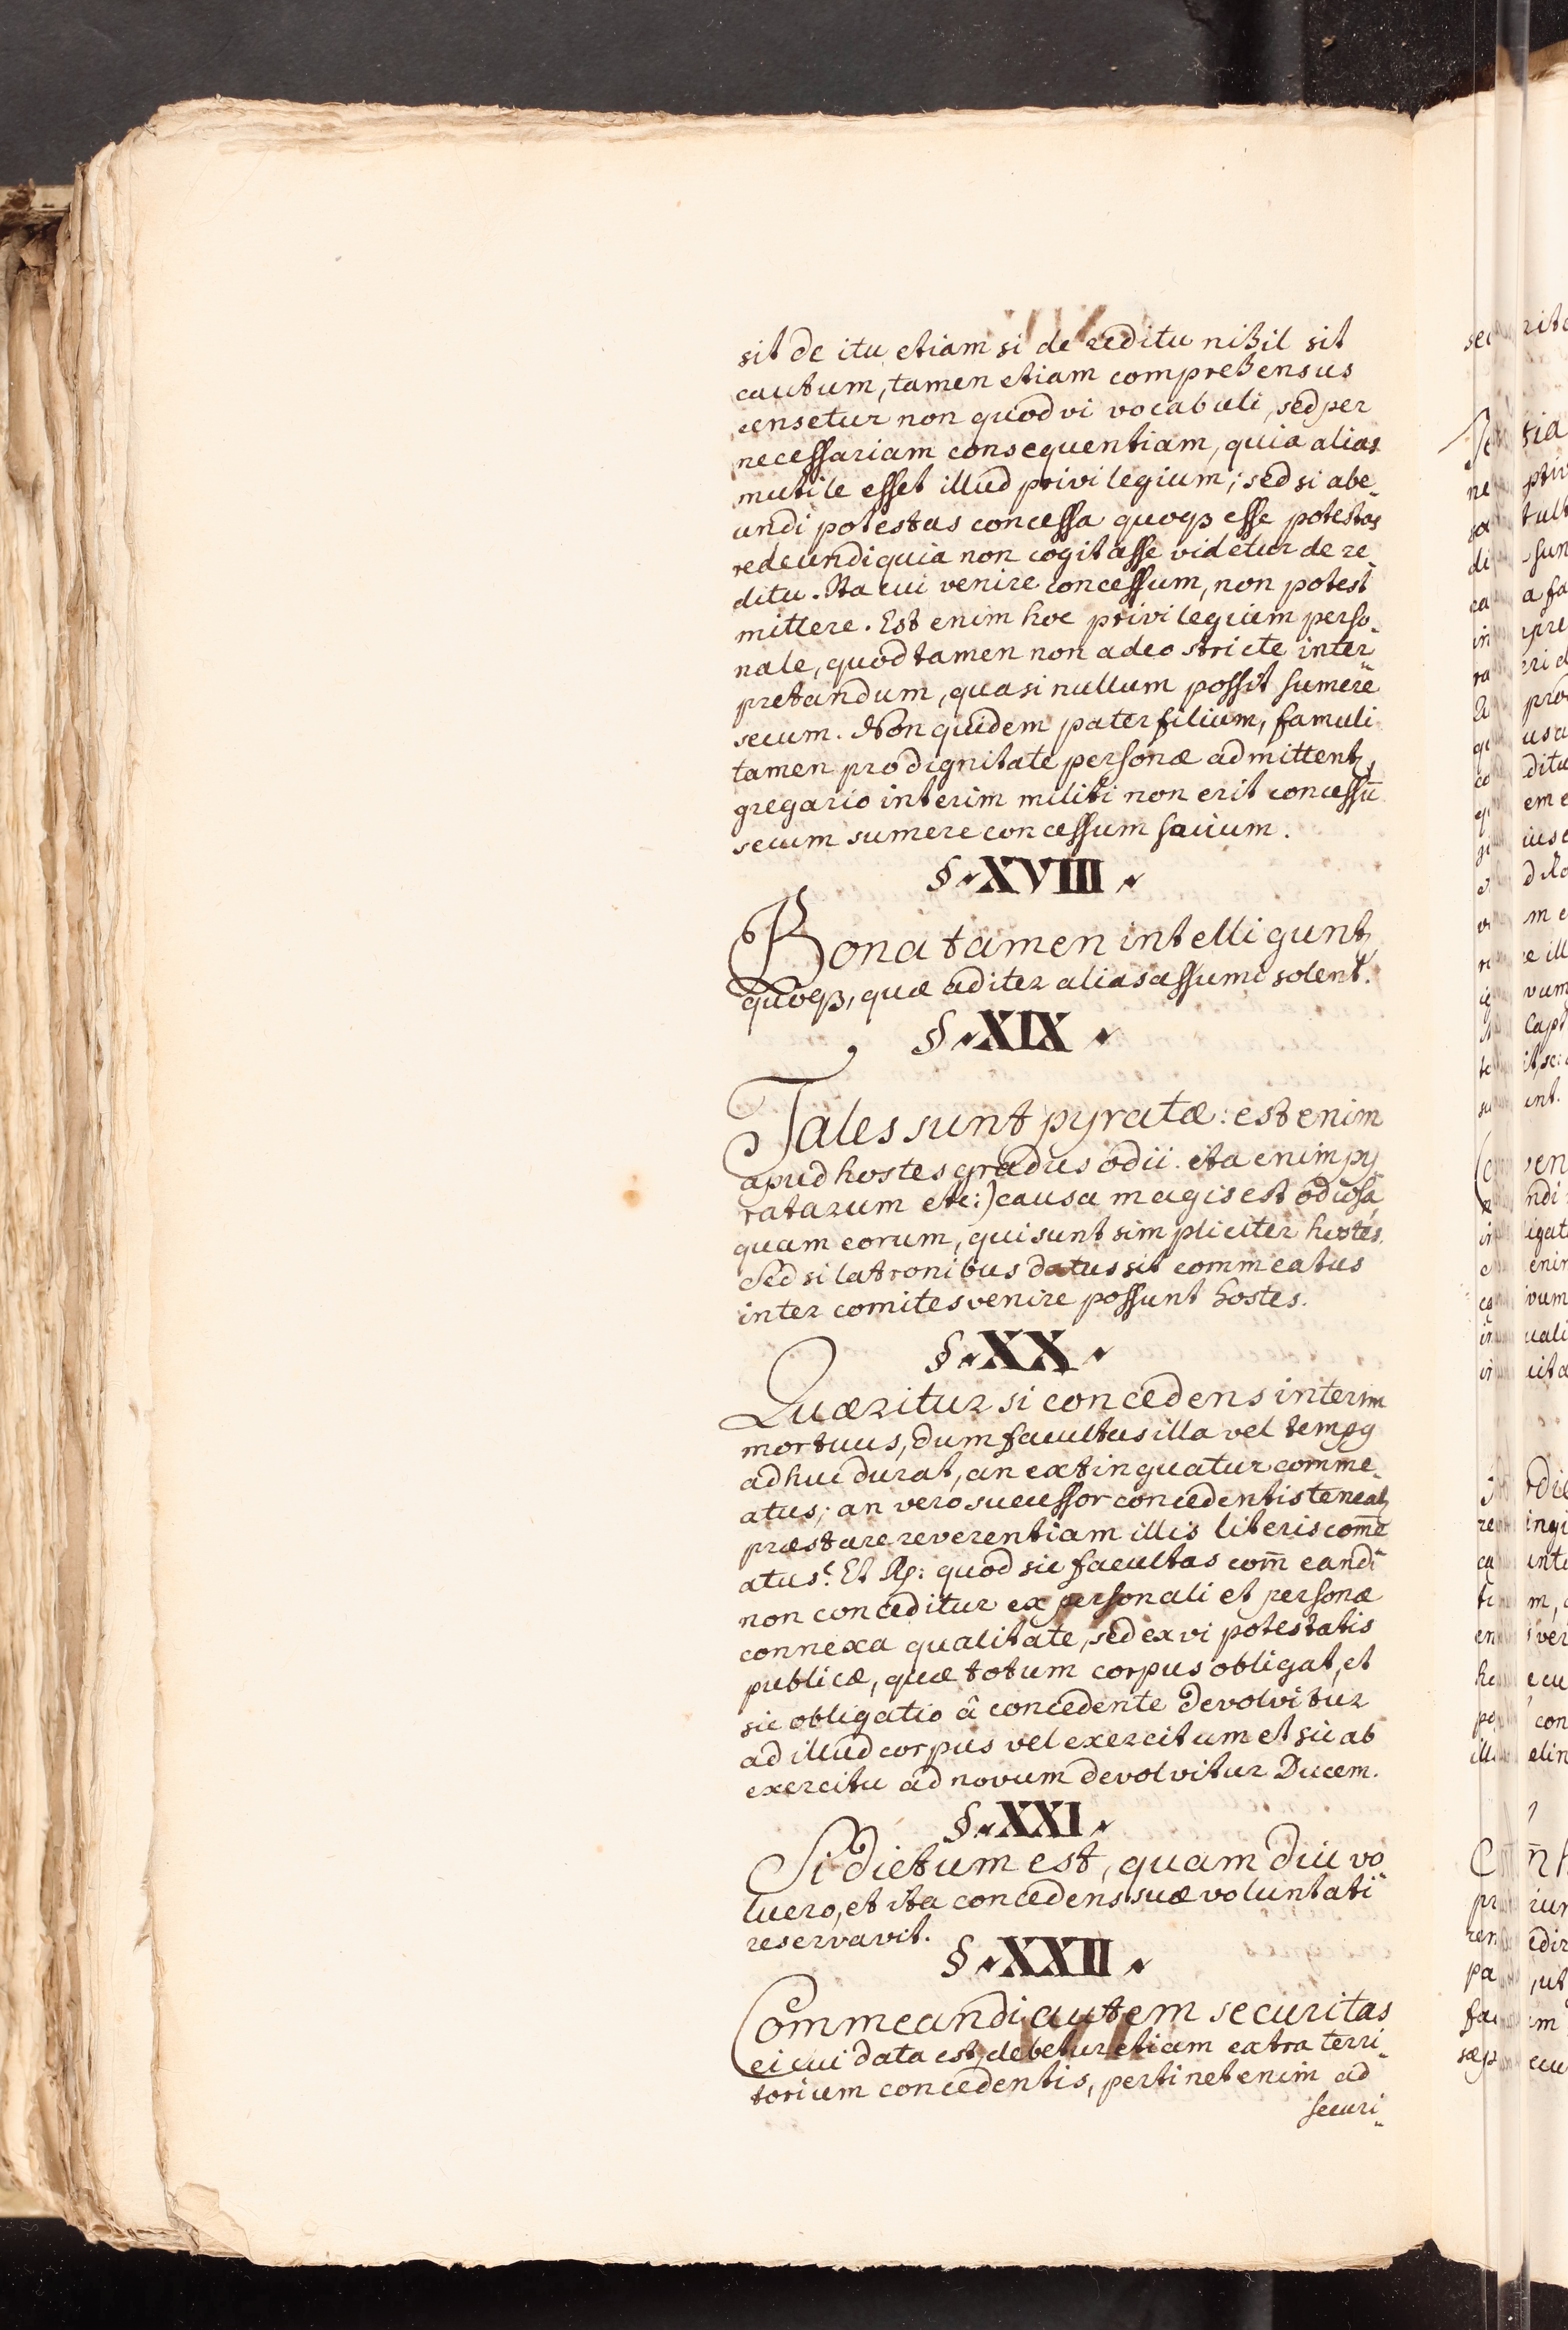 sit de itu etiam si de reditu nihil sit
cautum, tamen etiam comprehensus
censetur non quod vi vocabuli, sed per
necessariam consequentiam, quia alias
mutile esset illud privilegium; sed si abe„
undi potestas concessa quoqꝫ esse potestas
redeundi quia non cogitasse videtur de re„
ditu. Ita cui venire concessum, non potest
mittere. Est enim hoc privilegium perso„
nale, quod tamen non adeo stricte inter„
pretandum, quasi nullum possit sumere
secum. Non quidem pater filium, famuli
tamen pro dignitate personæ admittentꝫ,
gregario interim militi non erit concessũ
secum sumere concessum socium.
§ XVIII
Bona tamen intelliguntꝫ
quoqꝫ, quæ ad iter alias assumi solent.
§ XIX
Tales sunt pyratæ: est enim
apud hostes gradus odii. ita enim py„
ratarum etc:) causa magis est odiosa,
quam eorum, qui sunt simpliciter hostes.
Sed si latronibus datus sit commeatus
inter comites venire possunt hostes.
§ XX
Quæritur si concedens interim
mortuus, dum facultas illa vel tempꝯ
adhuc durat, an extinguatur comme„
atus; an vero successor concedentis teneatꝫ
præstare reverentiam illis literis com̃e
atus? Et ℟: quod sic facultas com̃eandi
non conceditur ex personali et personæ
connexa qualitate, sed ex vi potestatis
publicæ, quæ totum corpus obligat, et
sic obligatio â concedente devolvitur
ad illud corpus vel exercitum et sic ab
exercitu ad novum devolvitur Ducem.
§ XXI
Si dictum est, quam diu vo„
luero, et ita concedens suæ voluntati
reservavit.
§ XXII
Commeandi autem securitas
ei cui data est, debetur etiam extra terri„
torium concedentis, pertinet enim ad
securi„